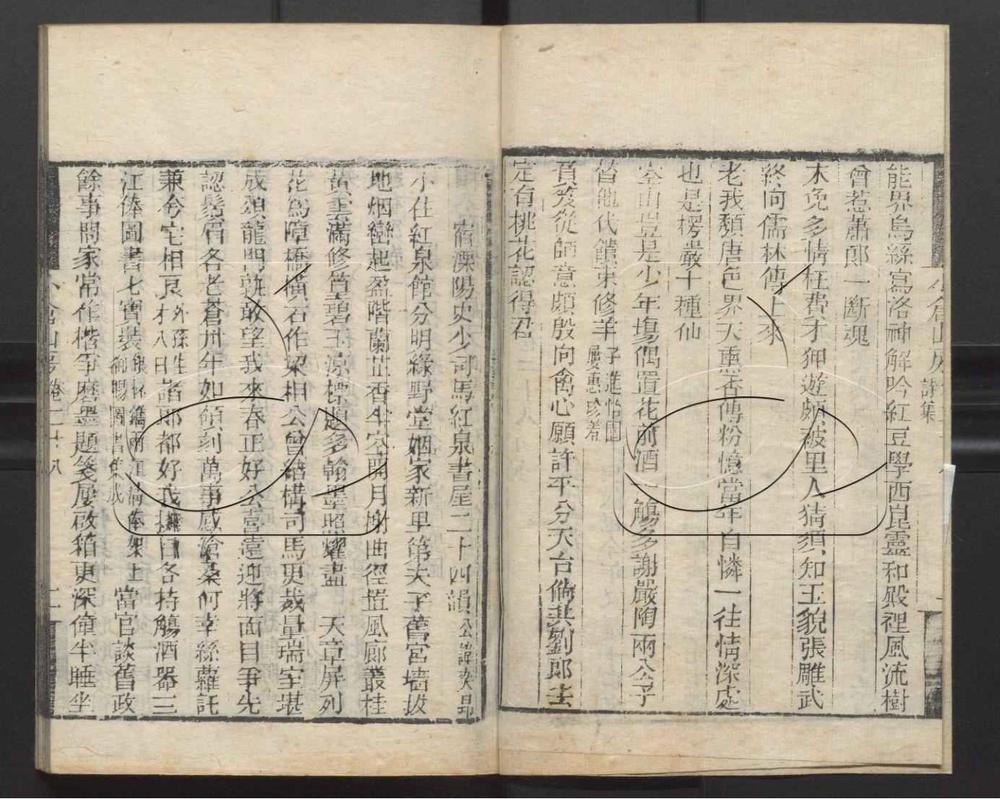 小倉山房詩集
能界烏絲寫洛神解吟紅豆學西崑靈和殿裡風流樹
曾惹蕭郎一斷魂
未免多情枉費才狎遊頗被里人猜須知玉貌張雕武
終向儒林傳上來
老我頹唐色界天熏香傅粉憶當年自憐一往情深處
也是楞嚴十種仙
空山豈是少年場偶置花前酒一觴多謝嚴陶兩公子
肯他代饋束修羊
子進怡園
屢惠珍羞
首發從師意頗殷向禽心願許平分天台倘共劉郎去
定有桃花認得君
宿溧陽史少司馬紅泉書屋二十四韻公諱奕昂
小住紅泉館分明綠野堂姻家新甲第天子舊宮墻拔
地烟巒起盈階蘭芷香半空開月榭曲徑置風廊叢桂
黃雲滿修篁碧玉涼標題多翰墨照耀盡　天章屏列
花為障橋橫石作梁相公曾締構司馬更裁量瑞室堪
成頌龍門就敢望我來春正好公喜遠迎將面目爭先
認鬚眉各老蒼卅年如頃刻萬事感滄桑何幸絲蘿託
兼兮宅相良
外孫生
才八日
諸郎都好我
各持觴酒器三
江俸圖書七寶裝
御賜圖書集成
架上當官談舊政
餘事問家常作楷爭磨墨題箋屢啟箱更深僮半睡坐
小倉山房卷二十八